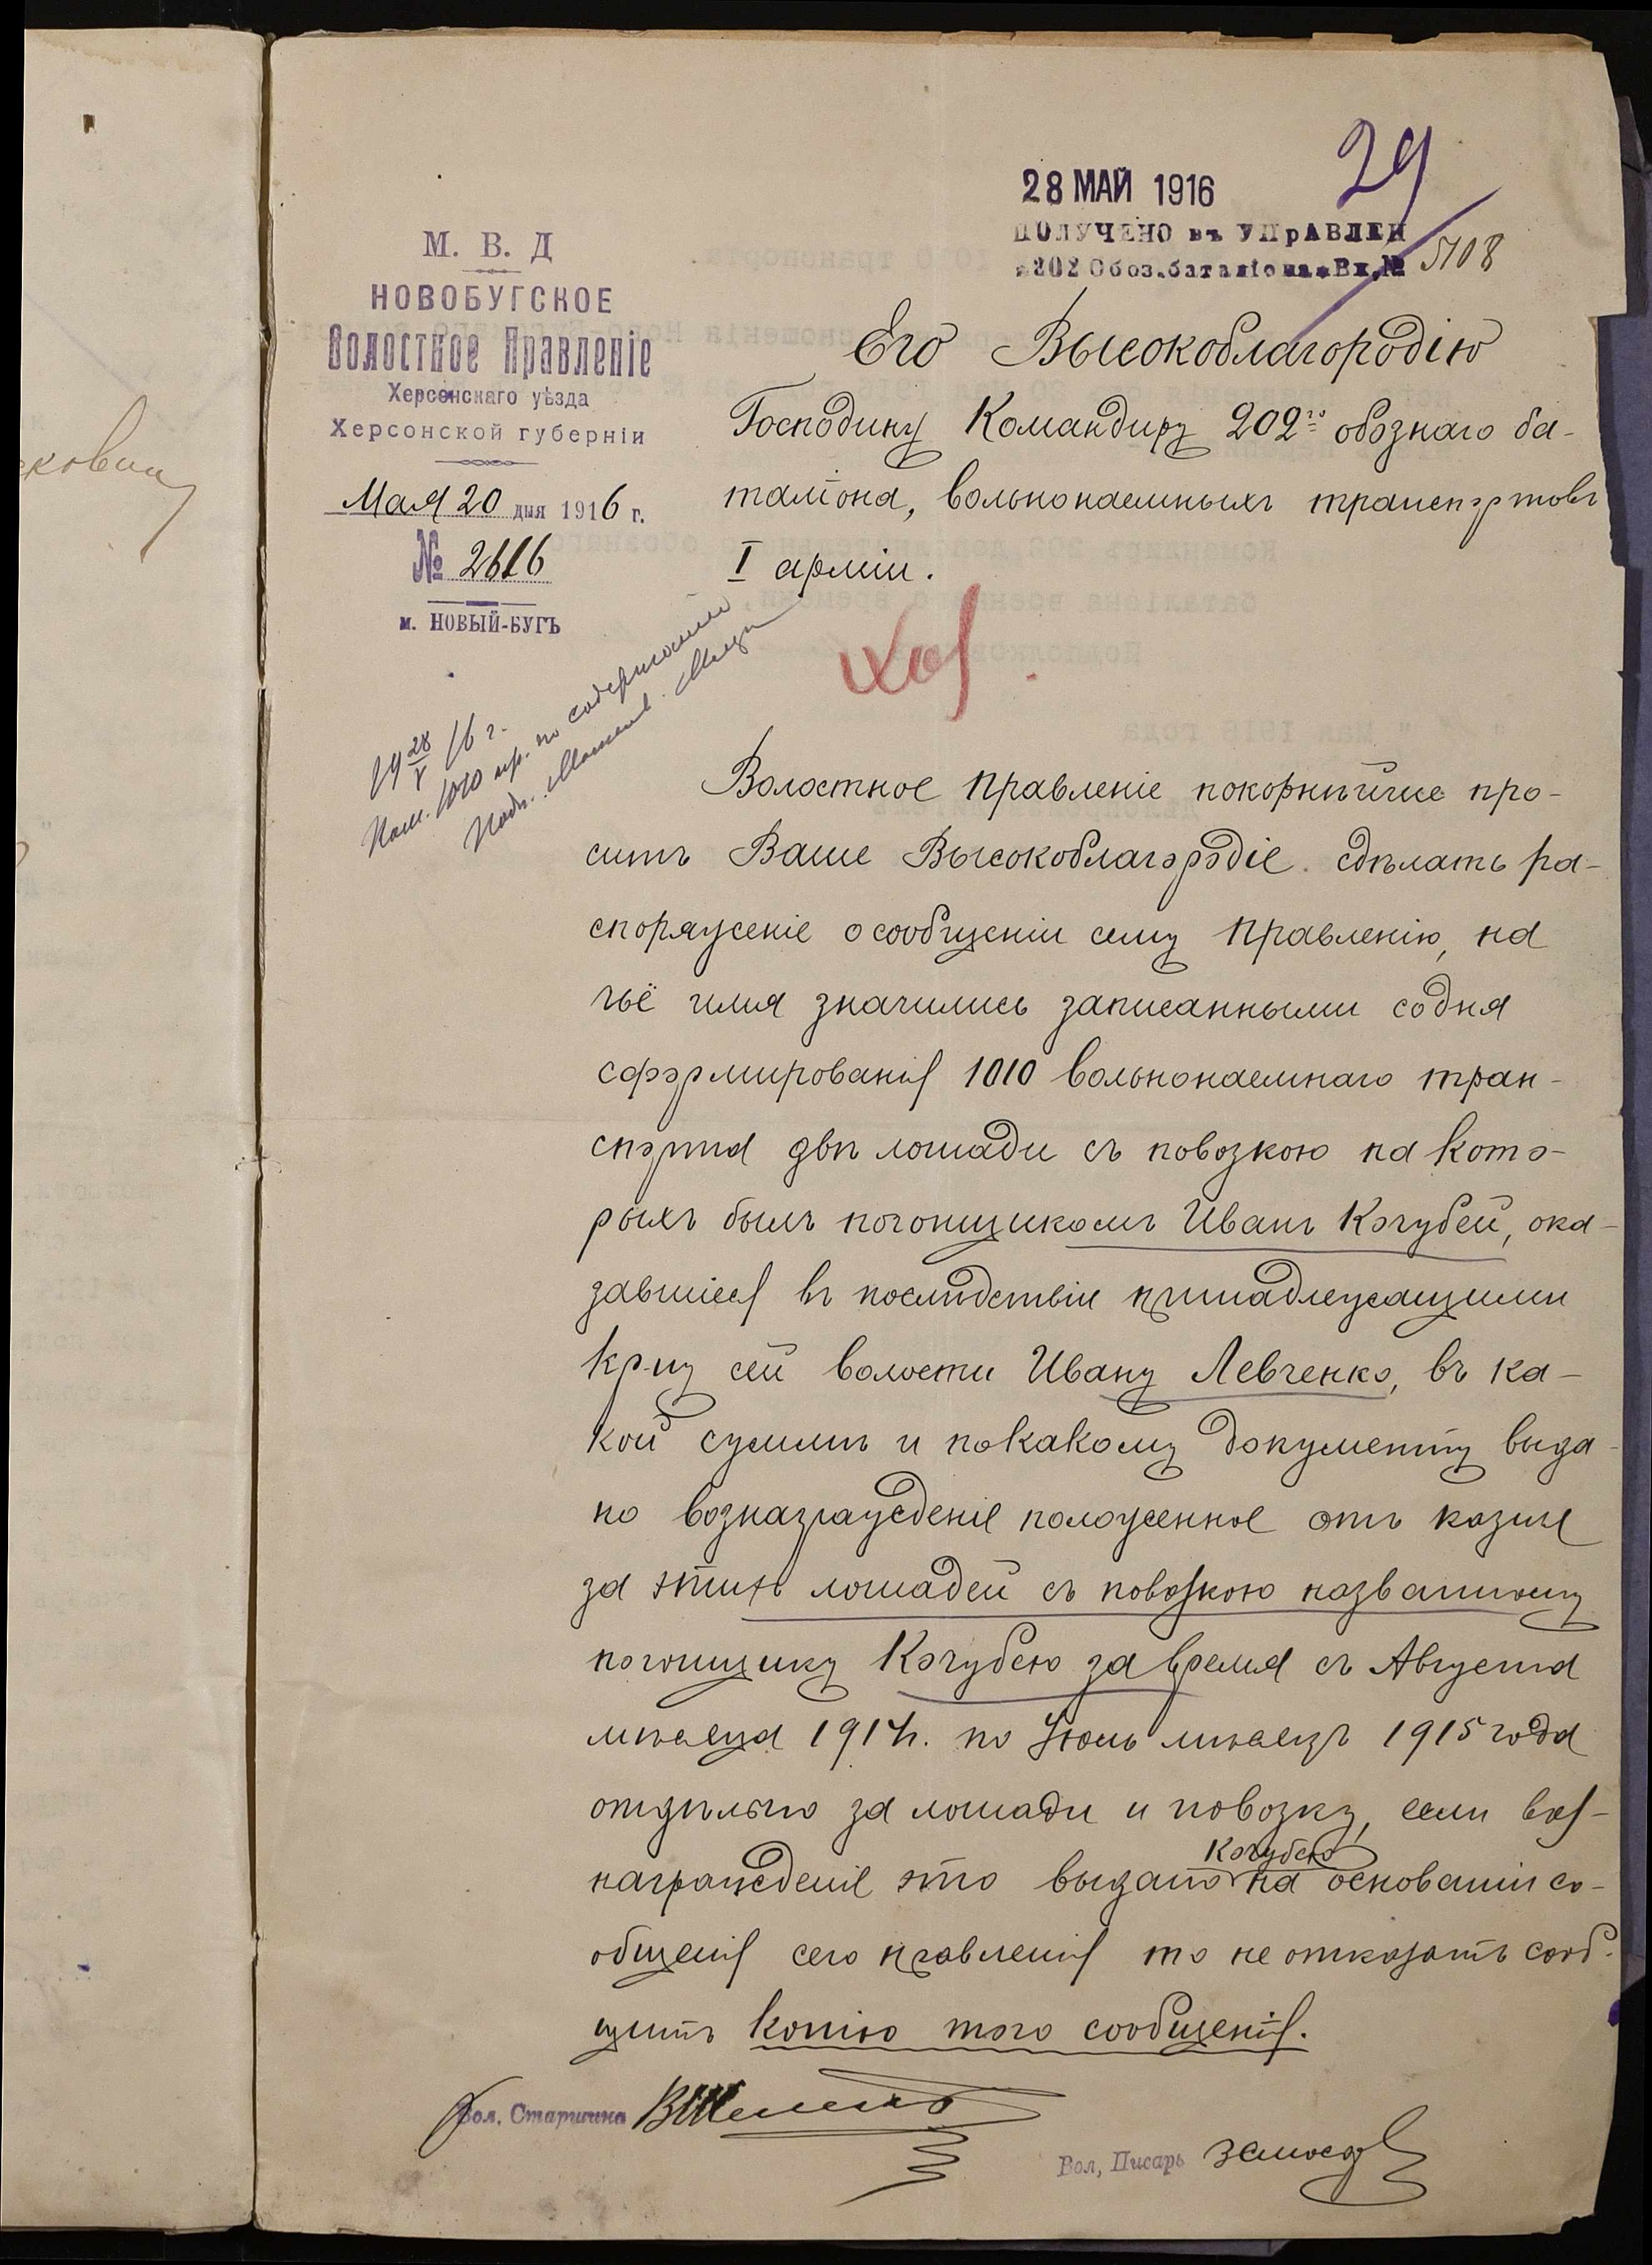 29
28 МАЙ 1916
ПОЛУЧЕНО въ УПрАВЛЕН
202 Обоз.баталіона Вх.№ 5108
М. В. Д
НОВОБУГСКОЕ
Волостное Правленіе
Херсонскаго уѣзда
Херсонской губерніи
Мая 20 дня 1916 г.
№ 2616
м. НОВЫЙ-БУГЪ
Его Высокоблагородію
Господину Командиру 202го обознаго ба-
таліона, вольнонаемныхъ транспортовъ
I арміи.
28/V 16 г.
1010 тр. по содержанію
Волостное Правленіе покорнѣйше про-
ситъ Ваше Высокоблагородіе сдѣлать ра-
споряженіе о сообщеніи сему Правленію, на
чьё имя значились записанными со дня
сформированія 1010 вольнонаемнаго тран-
спорта двѣ лошади съ повозкою на кото-
рыхъ былъ погонщикомъ Иванъ Кочубей, ока-
завшіеся въ послѣдствіи принадлежащими
кр-ну сей волости Ивану Левченко, въ ка-
кой суммѣ и по какому документу выда-
но вознаграждение положенное отъ казны
за этихъ лошадей съ повозкою названному
погонщику Кочубею за время съ Августа
мѣсяца 1914 г. по Іюль мѣсяцъ 1915 года
отдѣльно за лошади и повозку, если воз-
награжденіе это выдано Кочубею на основаніи со-
общенія сего правленія то не отказать сооб-
щить копію того сообщенія.
Вол. Старшина
Вол, Писарь